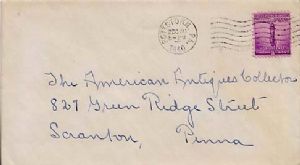 PA.
The American Antiques Collector
827 Green Ridge Street
Scranton,
Penna